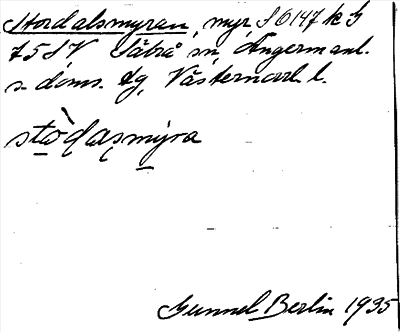 Stordalsmyran, myr, S 6147 k G
75 S V Säbrå sn, Ångermanl.
s. doms. dg, Västernorrl. l.
stòdasmyra
Gunnel Berlin 1935